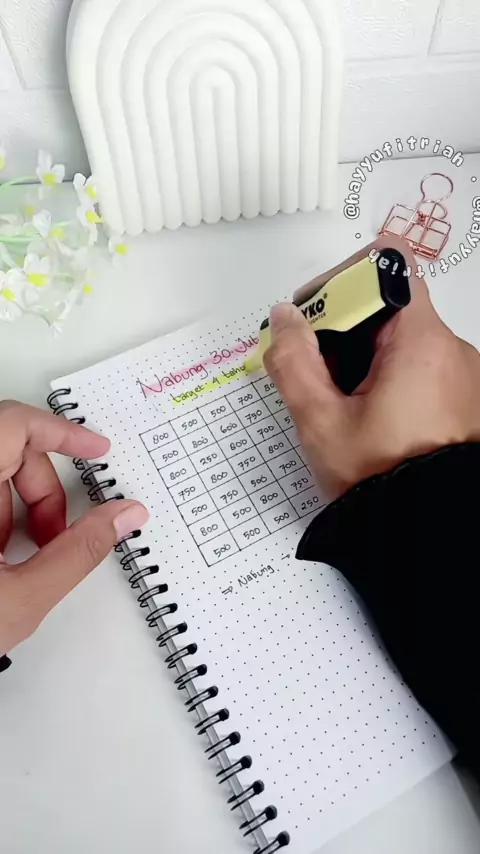 @hayyufitriah
@hayyufitriah
Nabung 30 Jut
target: 4 tahu
800 500 500 700 80
500 800 600 750
800 250 600 700
750 800 750 800
500 750 500 700
800 500 800 750
500 500 500 250
⇒ Nabung →